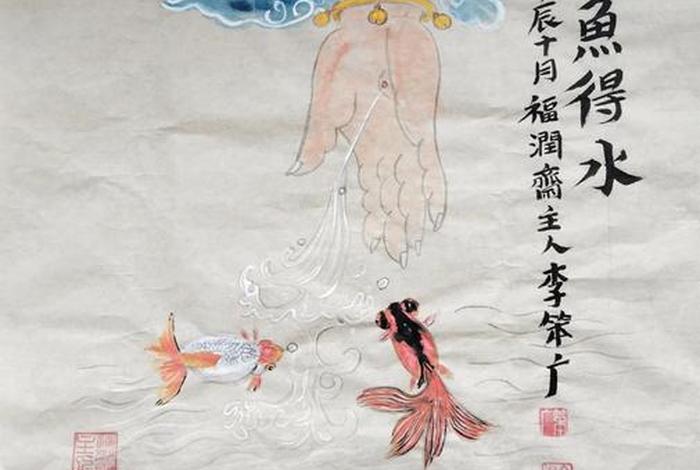 魚得水
辰十月福潤齋主人李笨广